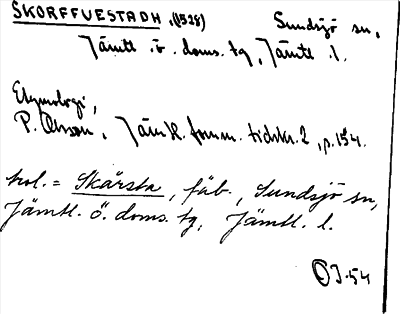 SKORFFUESTADH, (1528) Sundsjö sn,
Jämtl. ö. doms. tg, Jämtl. l.
Etymologi,
P. Olsson, Jämtl. fornm. tidskr. 2, p. 154.
hol. = Skärsta, fäb., Sundsjö sn,
Jämtl. ö. doms. tg, Jämtl. l.
OJ. 54